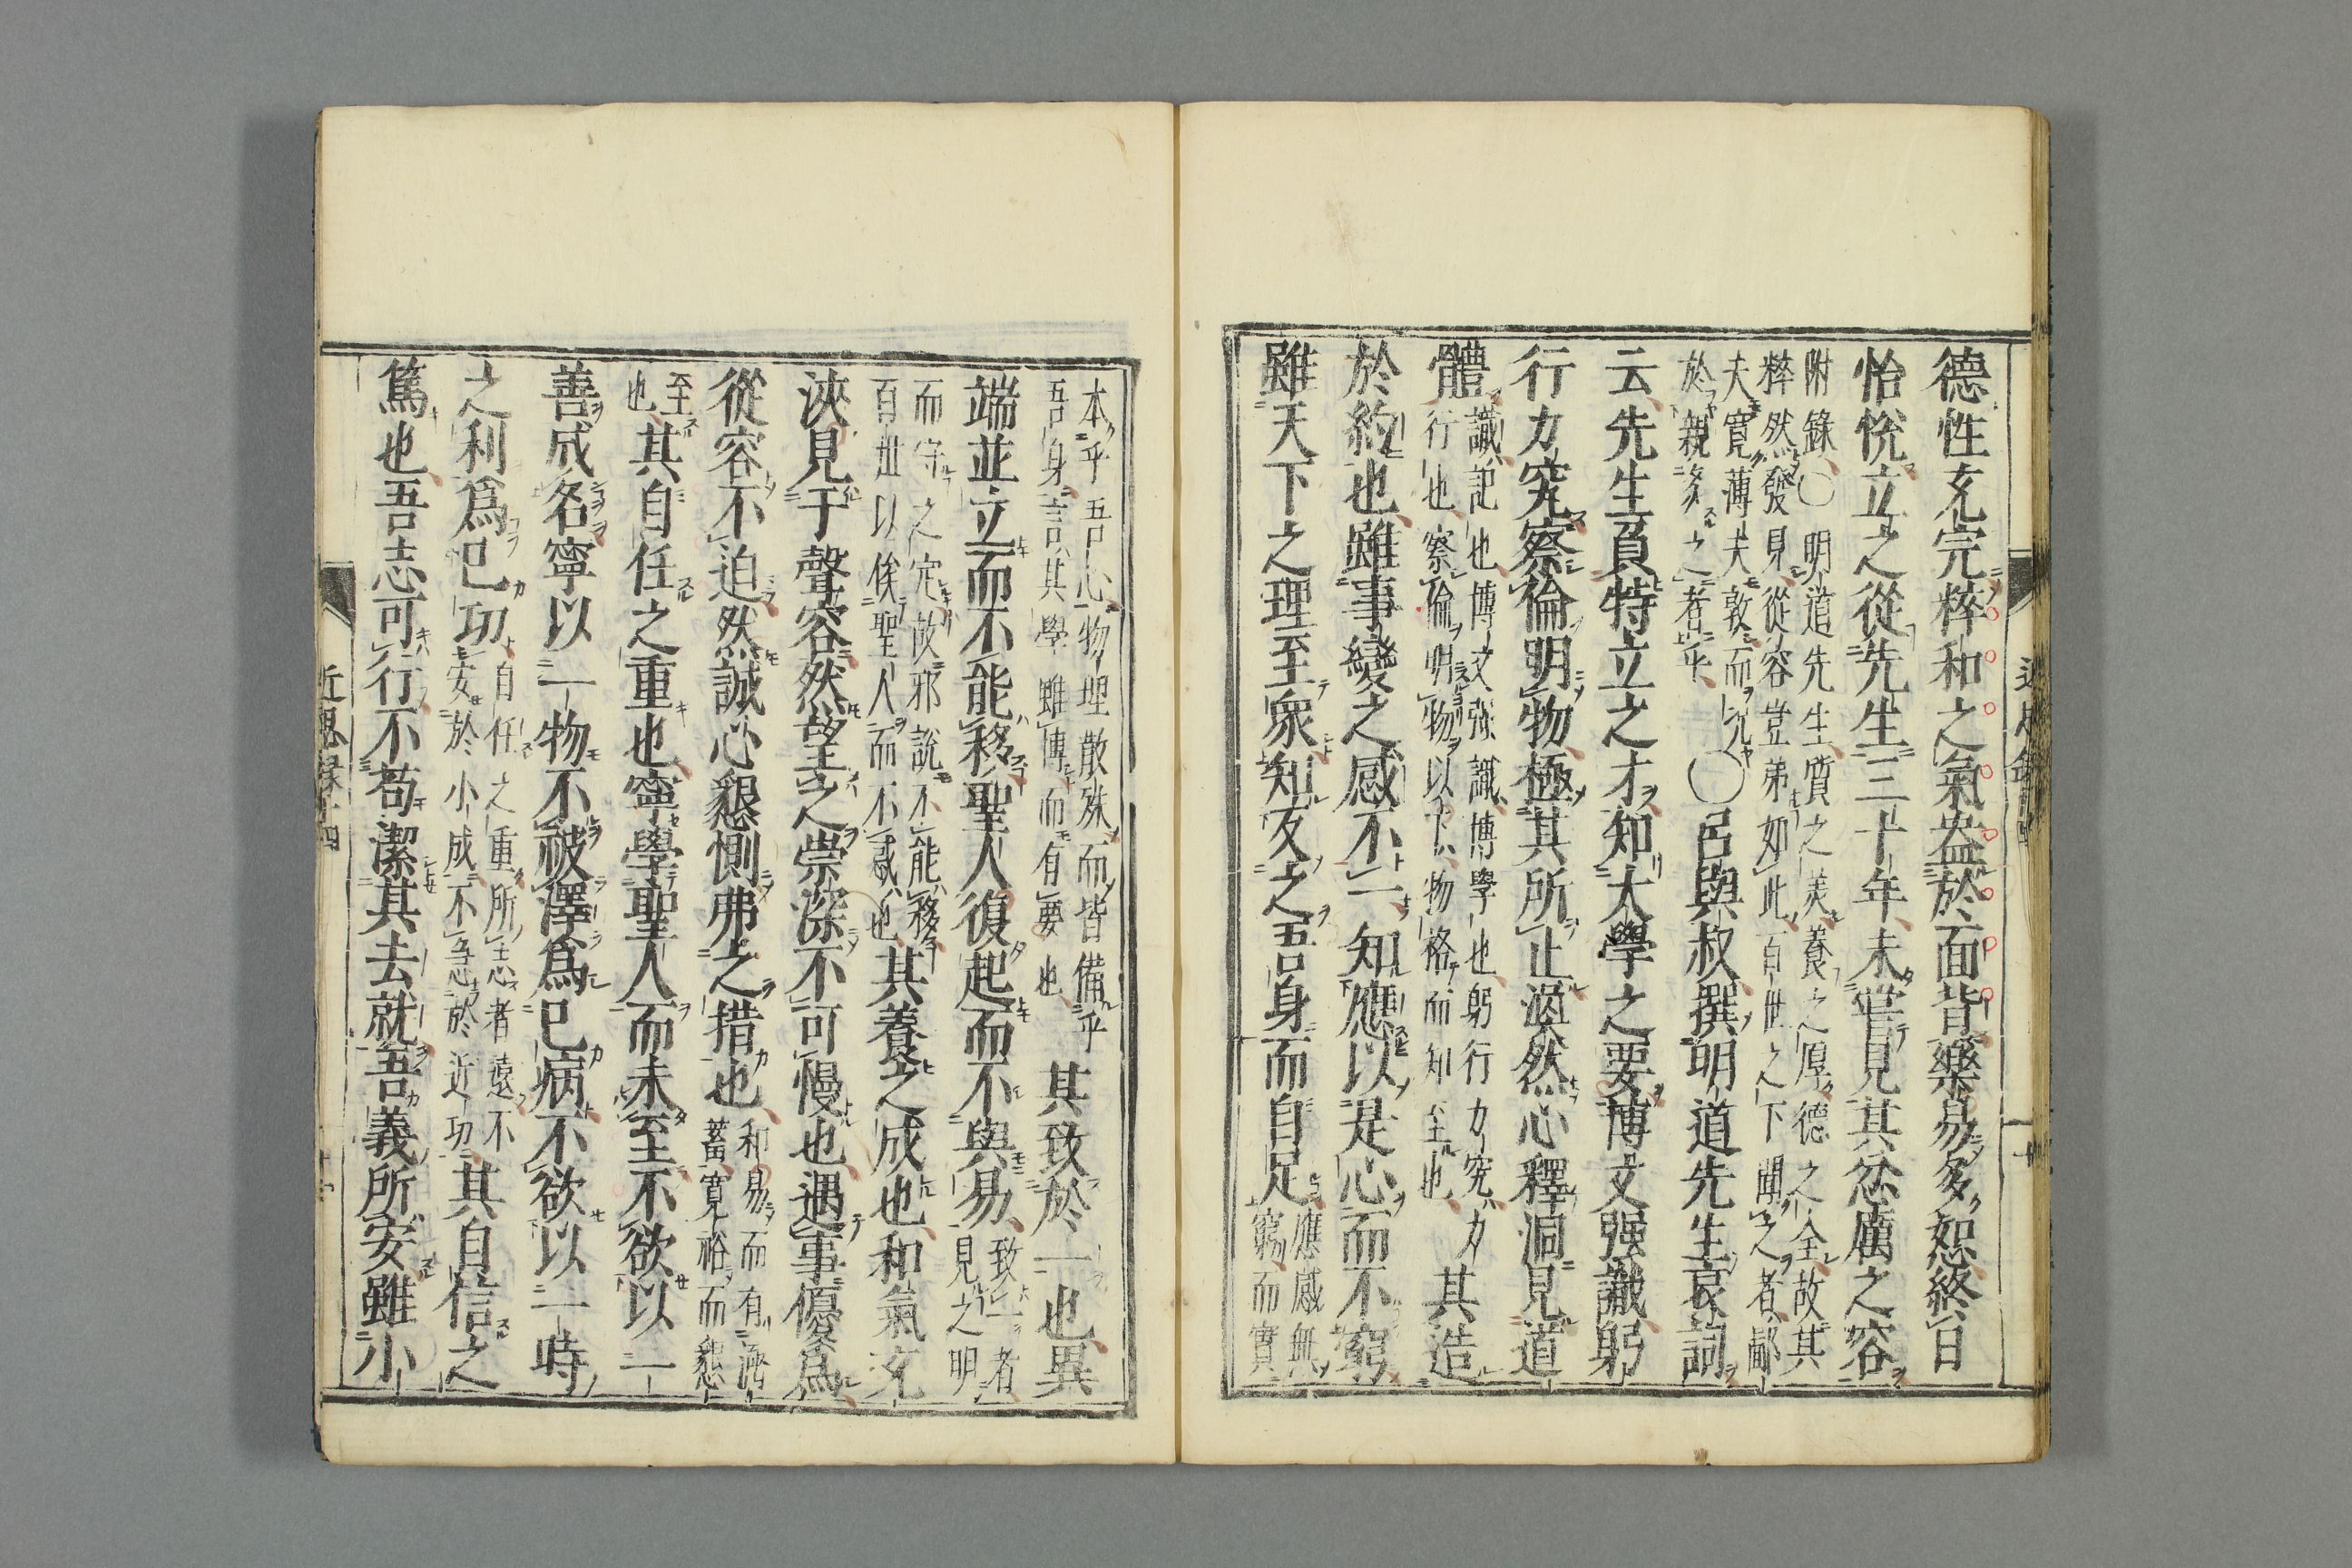 德性充完粹和之氣盎於面背樂易多恕終日
怡悅立之從先生三十年未嘗見其忿厲之容
附錄〇明道先生質之美養之厚德之全故其
粹然發見從容豈弟如此百世之下聞之者鄙
夫寬薄夫敦而況
於親炙之者乎
〇呂與叔撰明道先生哀詞
云先生負特立之才知大學之要博文强識躬
行力究察倫明物極其所止渙然心釋洞見道
體
識記也博文强識博學也躬行力究力
行也察倫明物以下物格而知至也
其造
於約也雖事變之感不一知應以是心而不窮
雖天下之理至衆知反之吾身而自足
應感無
窮而實
本乎吾心物理散殊而皆備乎
吾身言其學雖博而有要也
其致於一也異
端並立而不能移聖人復起而不與易
致一者
見之明
而守之定故邪說不能移
百世以俟聖人而不惑也
其養之成也和氣充
浹見于聲容然望之崇深不可慢也遇事優爲
從容不迫然誠心懇惻弗之措也
和易而有濟
蓄寬裕而懇
至
也
其自任之重也寧學聖人而未至不欲以一
善成名寧以一物不被澤爲己病不欲以一時
之利爲己功
自任之重所志者遠不
安於小成不急於近功
其自信之
篤也吾志可行不苟潔其去就吾義所安雖小
近思錄十四
十一